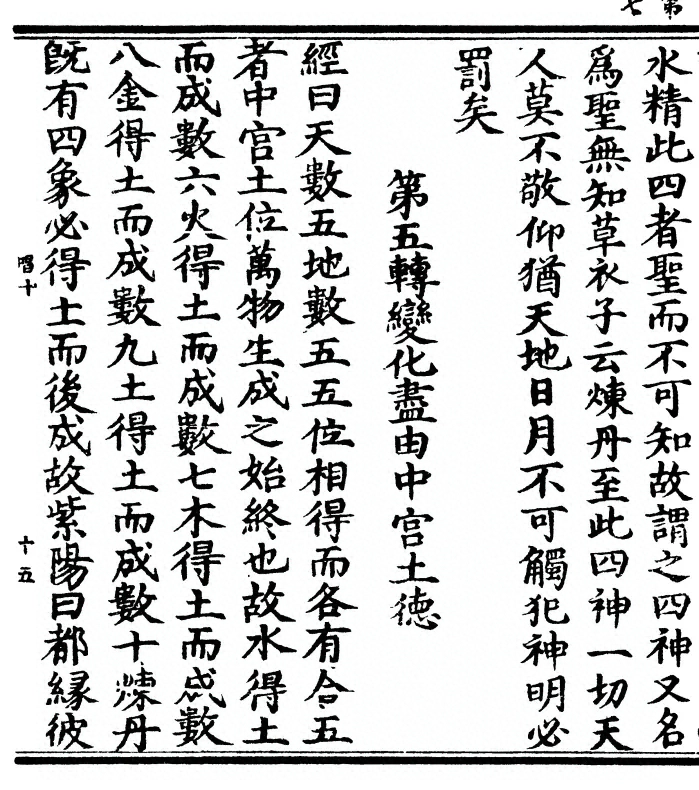 第七
水精此四者聖而不可知故謂之四神又名
爲聖無知草衣子云煉丹至此四神一切天
人莫不敬仰猶天地日月不可觸犯神明必
罰矣
第五轉變化盡由中宫土德
經曰天數五地數五五位相得而各有合五
者中宫土位萬物生成之始終也故水得土
而成數六火得土而成數七木得土而成數
八金得土而成數九土得土而成數十煉丹
旣有四象必得土而後成故紫陽曰都緣彼
十五